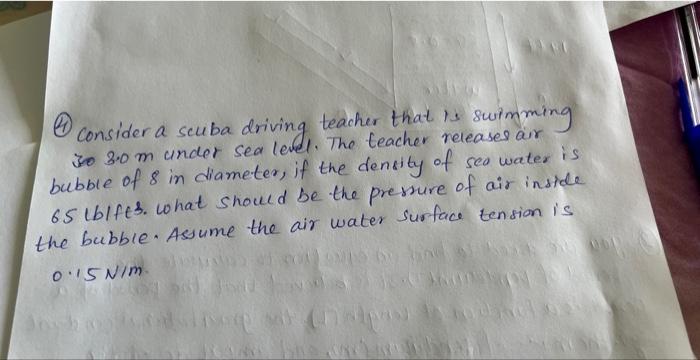 ④ Consider a scuba driving teacher that is swimming
30 m under sea level. The teacher releases air
bubble of 8 in diameter, if the density of sea water is
65 lb/ft3. what should be the pressure of air inside
the bubble. Assume the air water surface tension is
0.15 N/m.